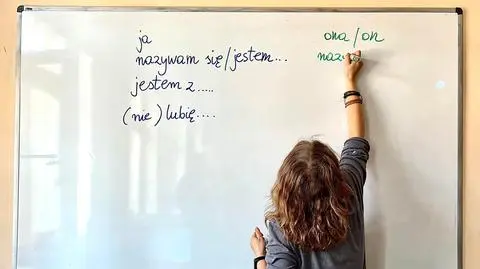 ja
nazywam się/jestem...
jestem z.....
(nie) lubię....
ona/on